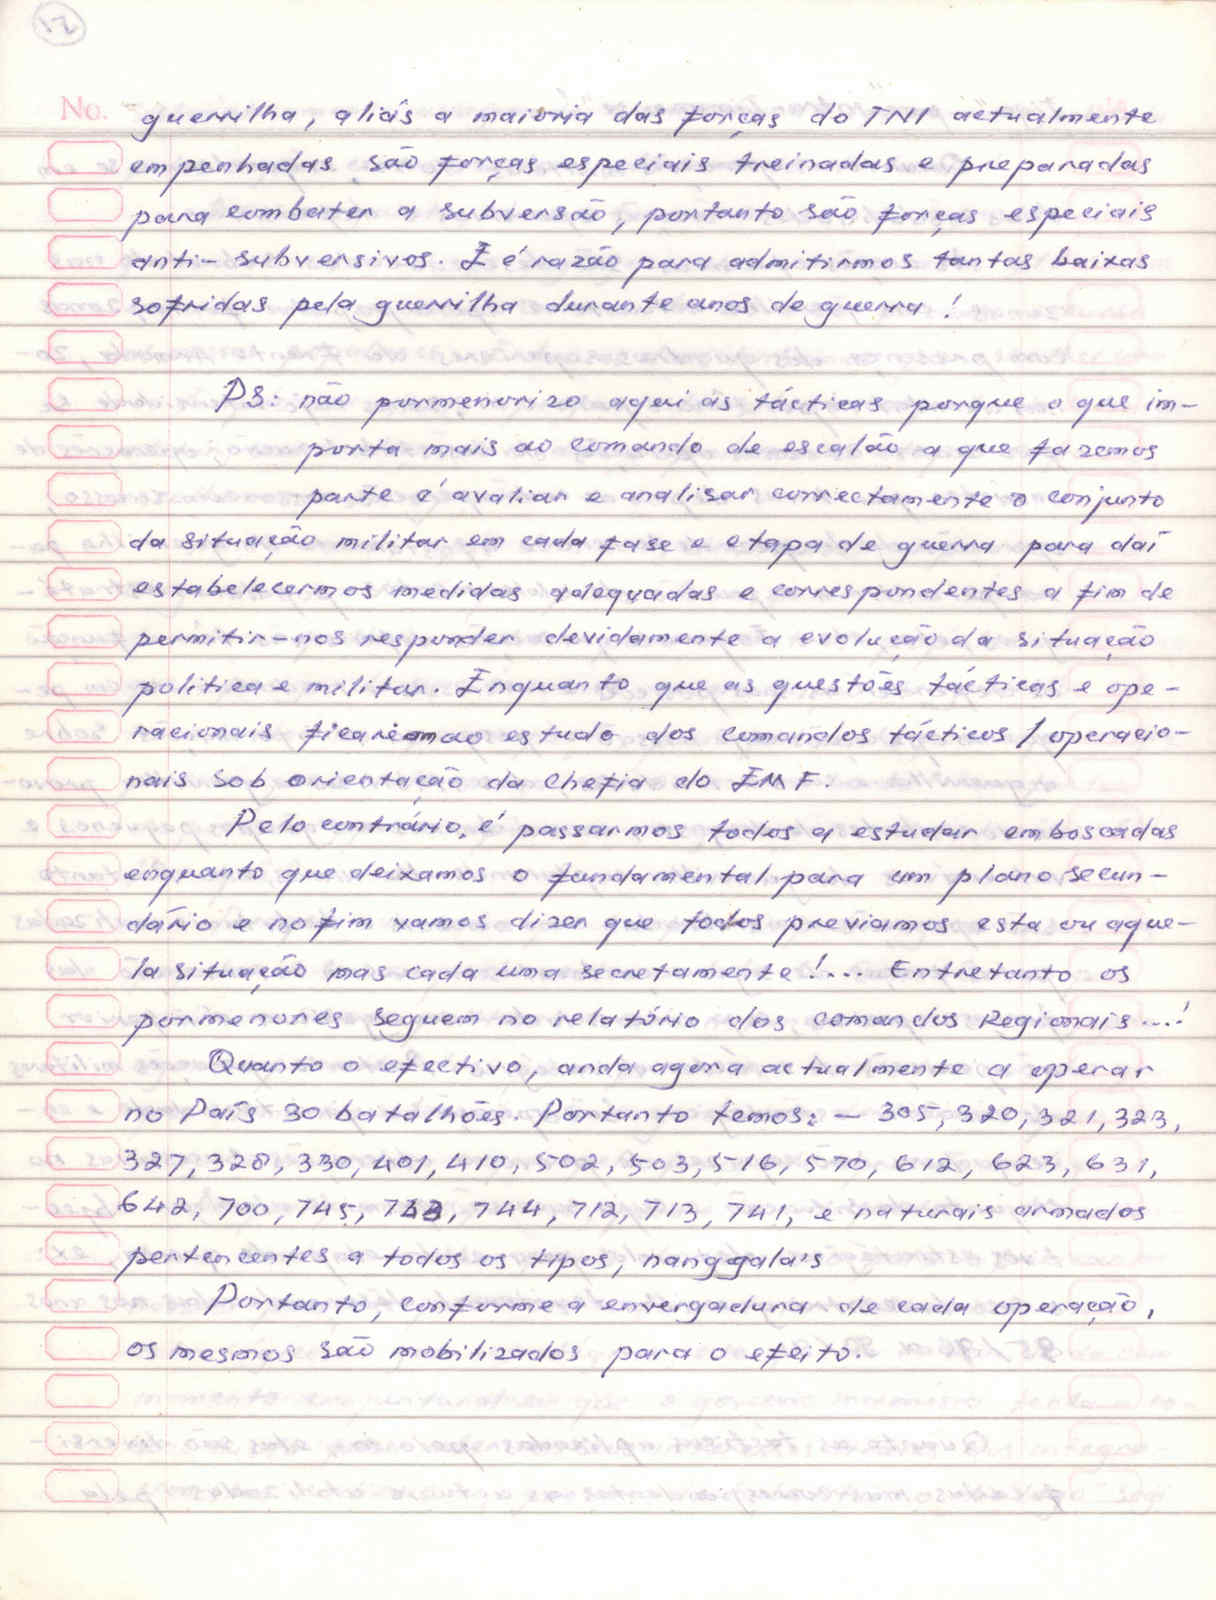 No. guerrilha, aliás a maioria das forças do TNI actualmente
empenhadas são forças especiais treinadas e preparadas
para combater a subversão, portanto são forças especiais
anti-subversivos. E é razão para admitirmos tantas baixas
sofridas pela guerrilha durante anos de guerra!
PS: não pormenorizo aqui as tácticas porque o que im-
porta mais ao comando de escalão a que fazemos
parte é avaliar e analisar correctamente o conjunto
da situação militar em cada fase e etapa de guerra para daí
estabelecermos medidas adequadas e correspondentes a fim de
permitir-nos responder devidamente a evolução da situação
politica e militar. Enquanto que as questões tácticas e ope-
racionais ficariam ao estudo dos comandos tácticos / operacio-
nais sob orientação da Chefia do EMF.
Pelo contrário, é passarmos todos a estudar emboscadas
enquanto que deixamos o fundamental para um plano secun-
dário e no fim vamos dizer que todos previamos esta ou aque-
la situação mas cada uma secretamente!... Entretanto os
pormenores seguem no relatório dos comandos Regionais...!
Quanto o efectivo, anda agora actualmente a operar
no País 30 batalhões. Portanto temos: - 305, 320, 321, 323,
327, 328, 330, 401, 410, 502, 503, 516, 570, 612, 623, 631,
642, 700, 745, 744, 712, 713, 741, e naturais armados
pertencentes a todos os tipos, nanggala's
Portanto, conforme a envergadura de cada operação,
os mesmos são mobilizados para o efeito.